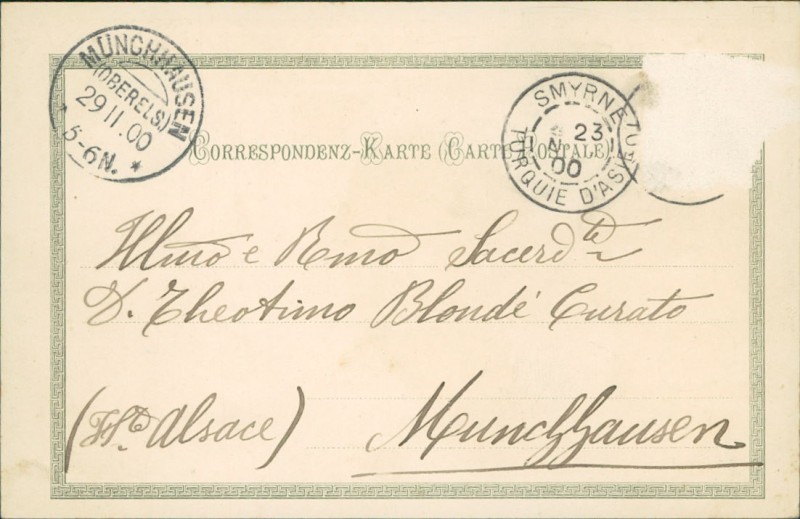 MÜNCHHAUSEN
(OBERELS.)
29 11.00
5-6N. *
SMYRNE
23
00
TURQUIE D'ASIE
CORRESPONDENZ-KARTE (CARTE POSTALE)
Illmo e Rmo Sacerdte
D. Theotimo Blondé Curato
(Hte Alsace) Munchhausen